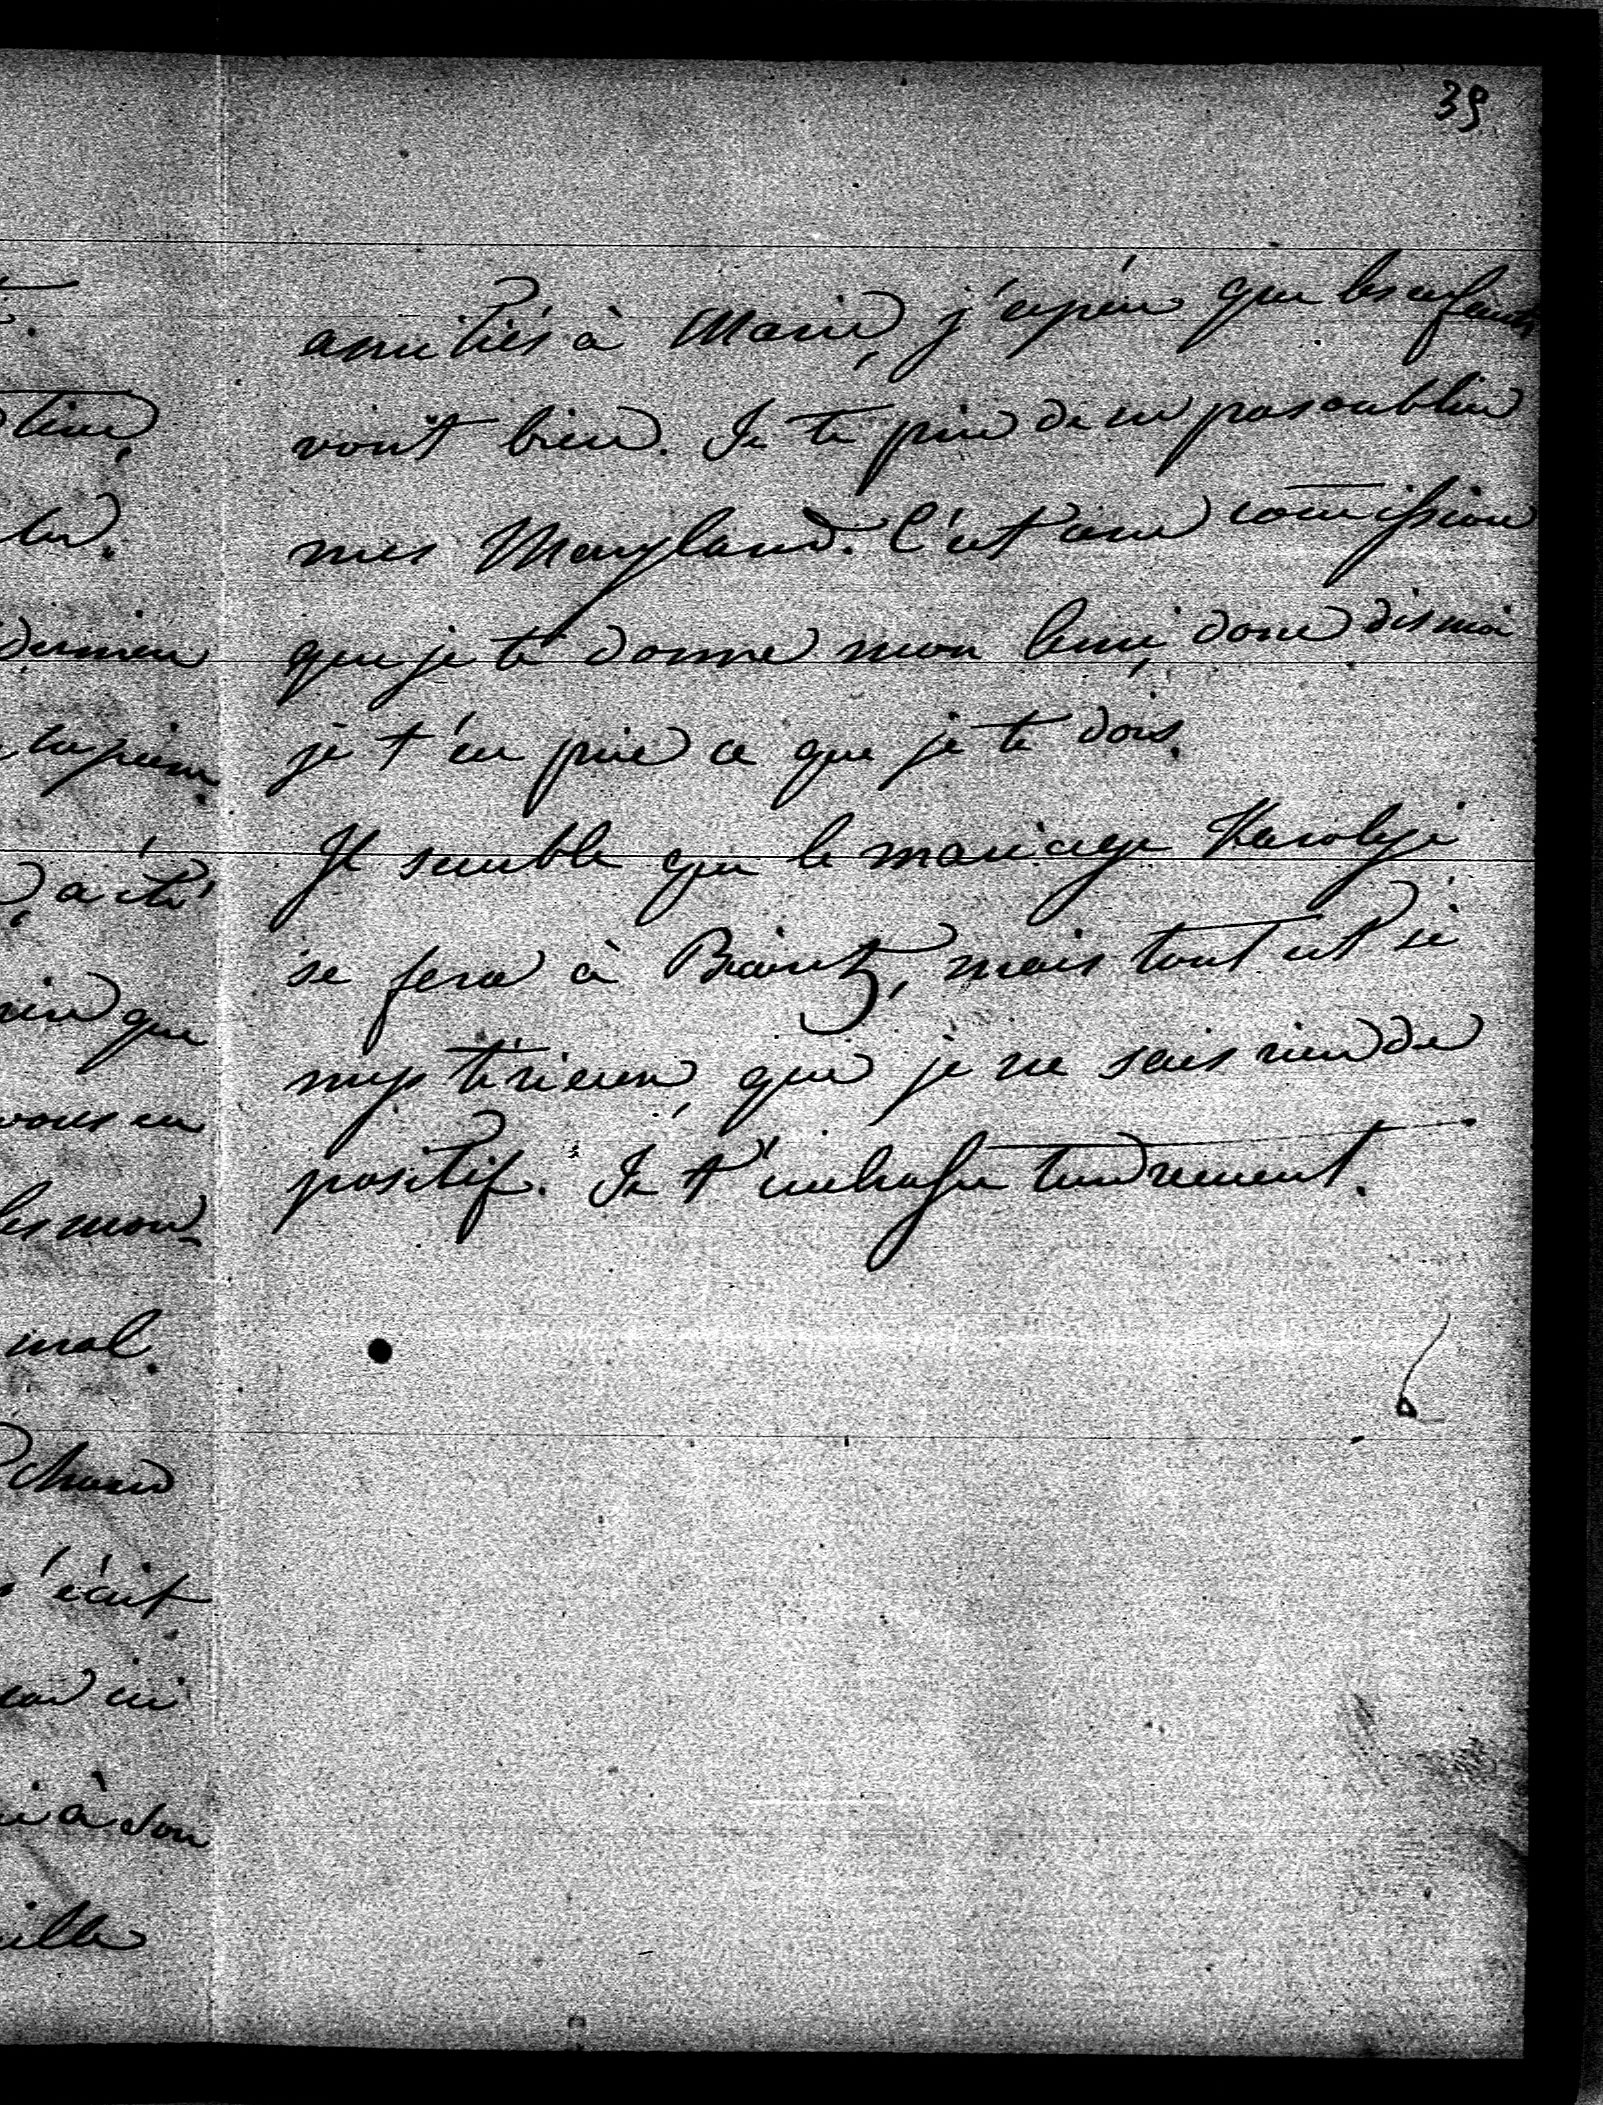 39
amitiés à Marie, j'espère que les enfants
vont bien. Je te prie de ne pas oublier
mes Maryland. C'est une comission
que je te donne mon beni, donc dis moi
je t'en prie ce que je te dois.
Il semble que le mariage Karolyi
se fera à Biaritz, mais tout est si
mystérieux, que je ne sais rien de
positif. Je t'embrasse tendrement.
tive,
dernier
a été
que
vous en
les mon-
mal.
écrit
ici
à son